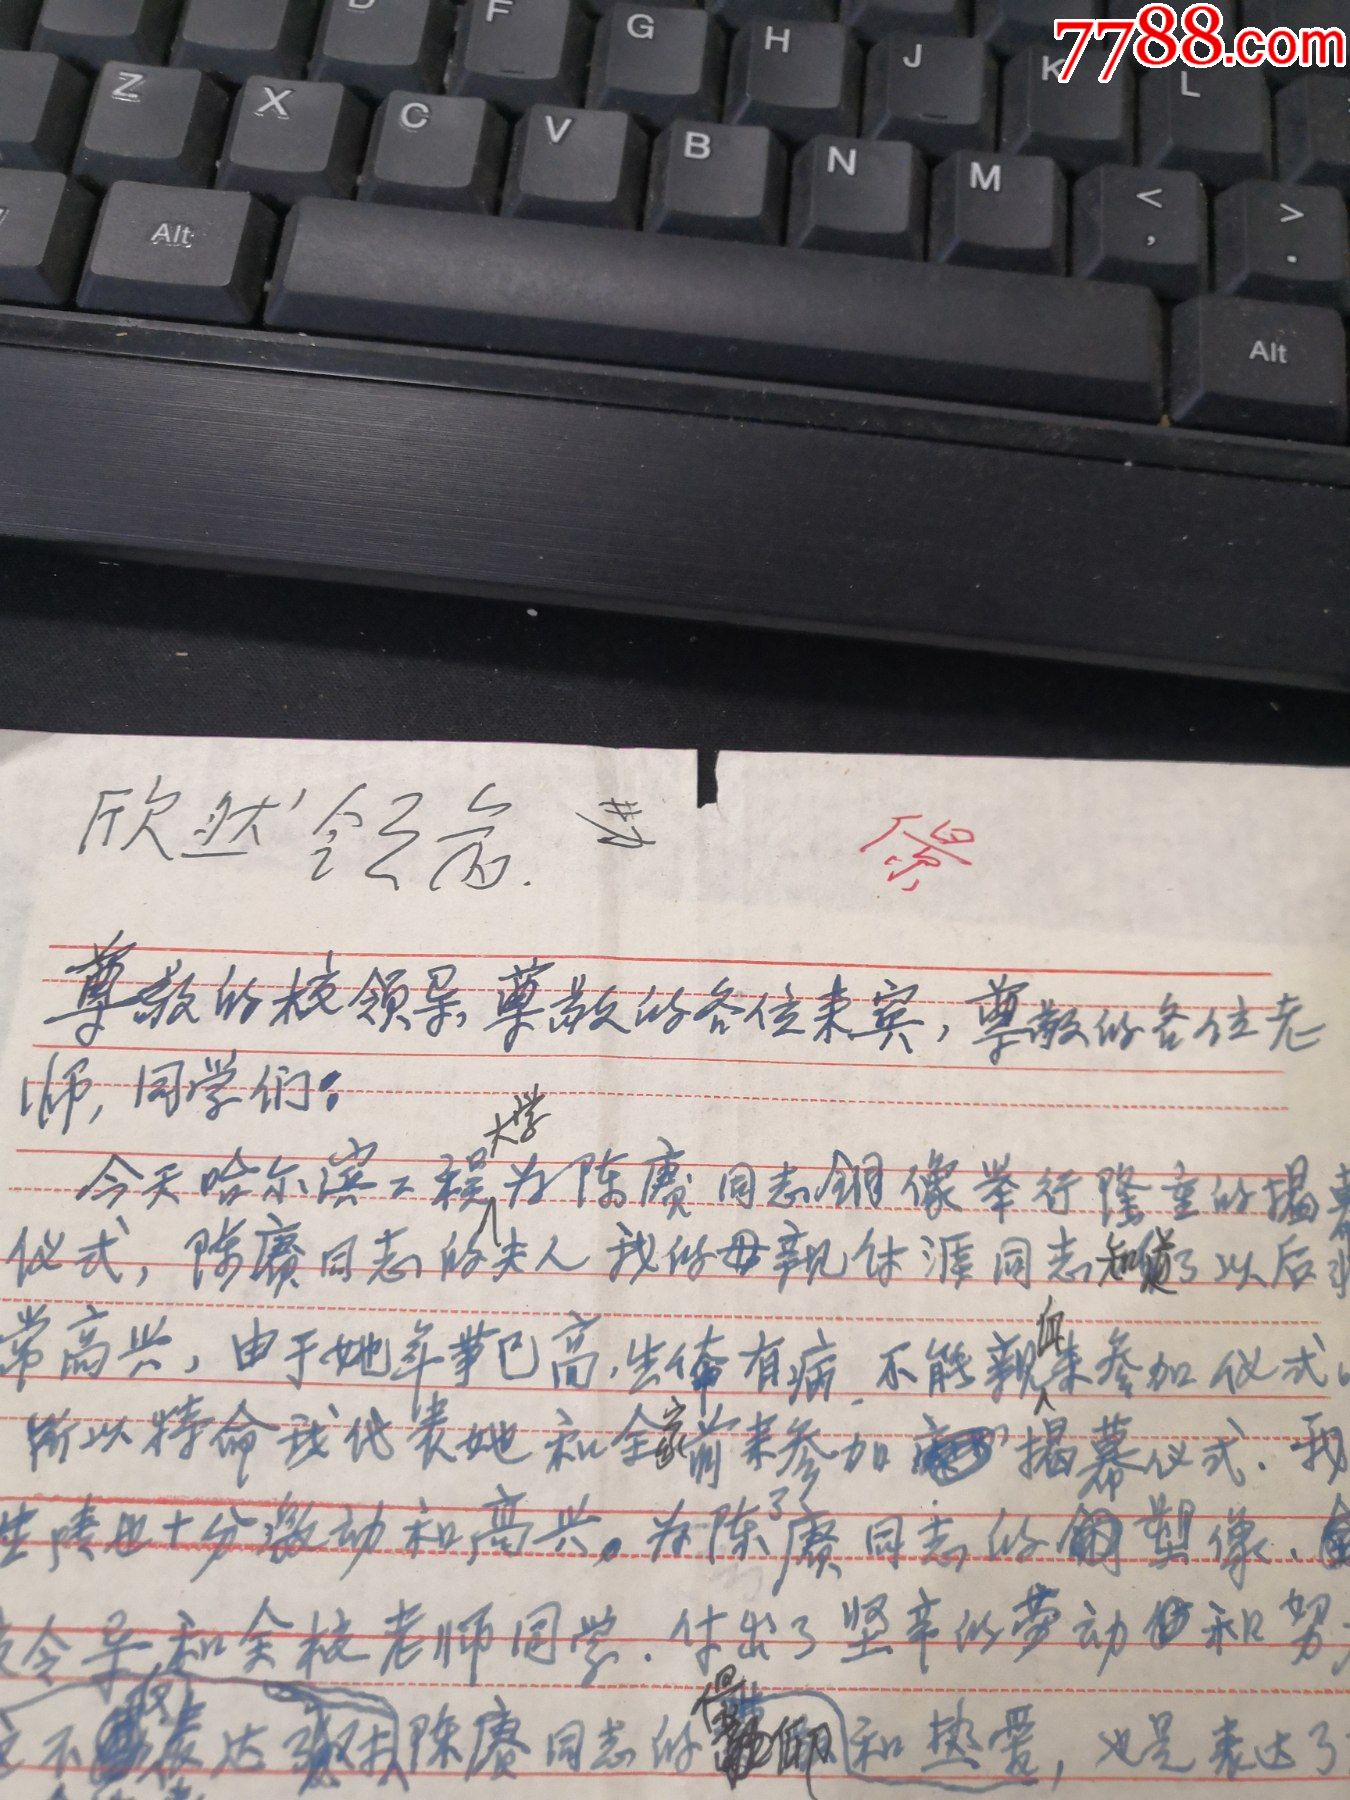 7788.com
D F G H J K L
Z X C V B N M < , > .
Alt Alt
欣然
尊敬的校领导,尊敬的各位来宾,尊敬的各位老
师,同学们:
大学
今天哈尔滨工程为陈赓同志铜像举行隆重的揭幕
仪式,陈赓同志的夫人我的母亲傅涯同志知道了以后非
常高兴,由于她年事已高,生体有病,不能亲自来参加仪式。
所以特命我代表她和全家前来参加揭幕仪式.我
也十分激动和高兴。为了陈赓同志的铜塑像、
令导和全校老师同学.付出了坚辛的劳动和努力
不表达了对陈赓同志的和热爱,也是表达了